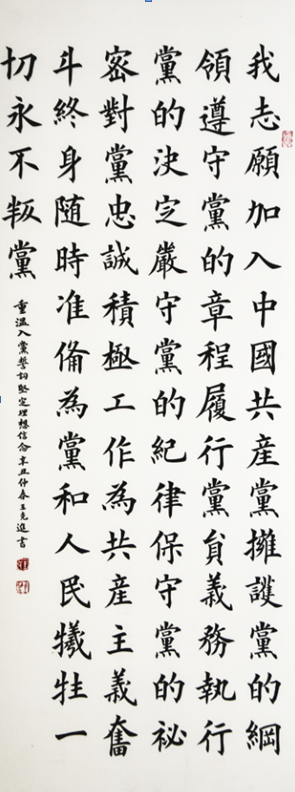 我志願加入中國共産黨擁護黨的綱
領遵守黨的章程履行黨貟義務執行
黨的決定嚴守黨的紀律保守黨的祕
密對黨忠誠積極工作為共産主義奮
斗終身随時准俻為黨和人民犧牲一
切永不叛黨
重温入黨誓詞堅定理想信念辛丑仲春王克進書